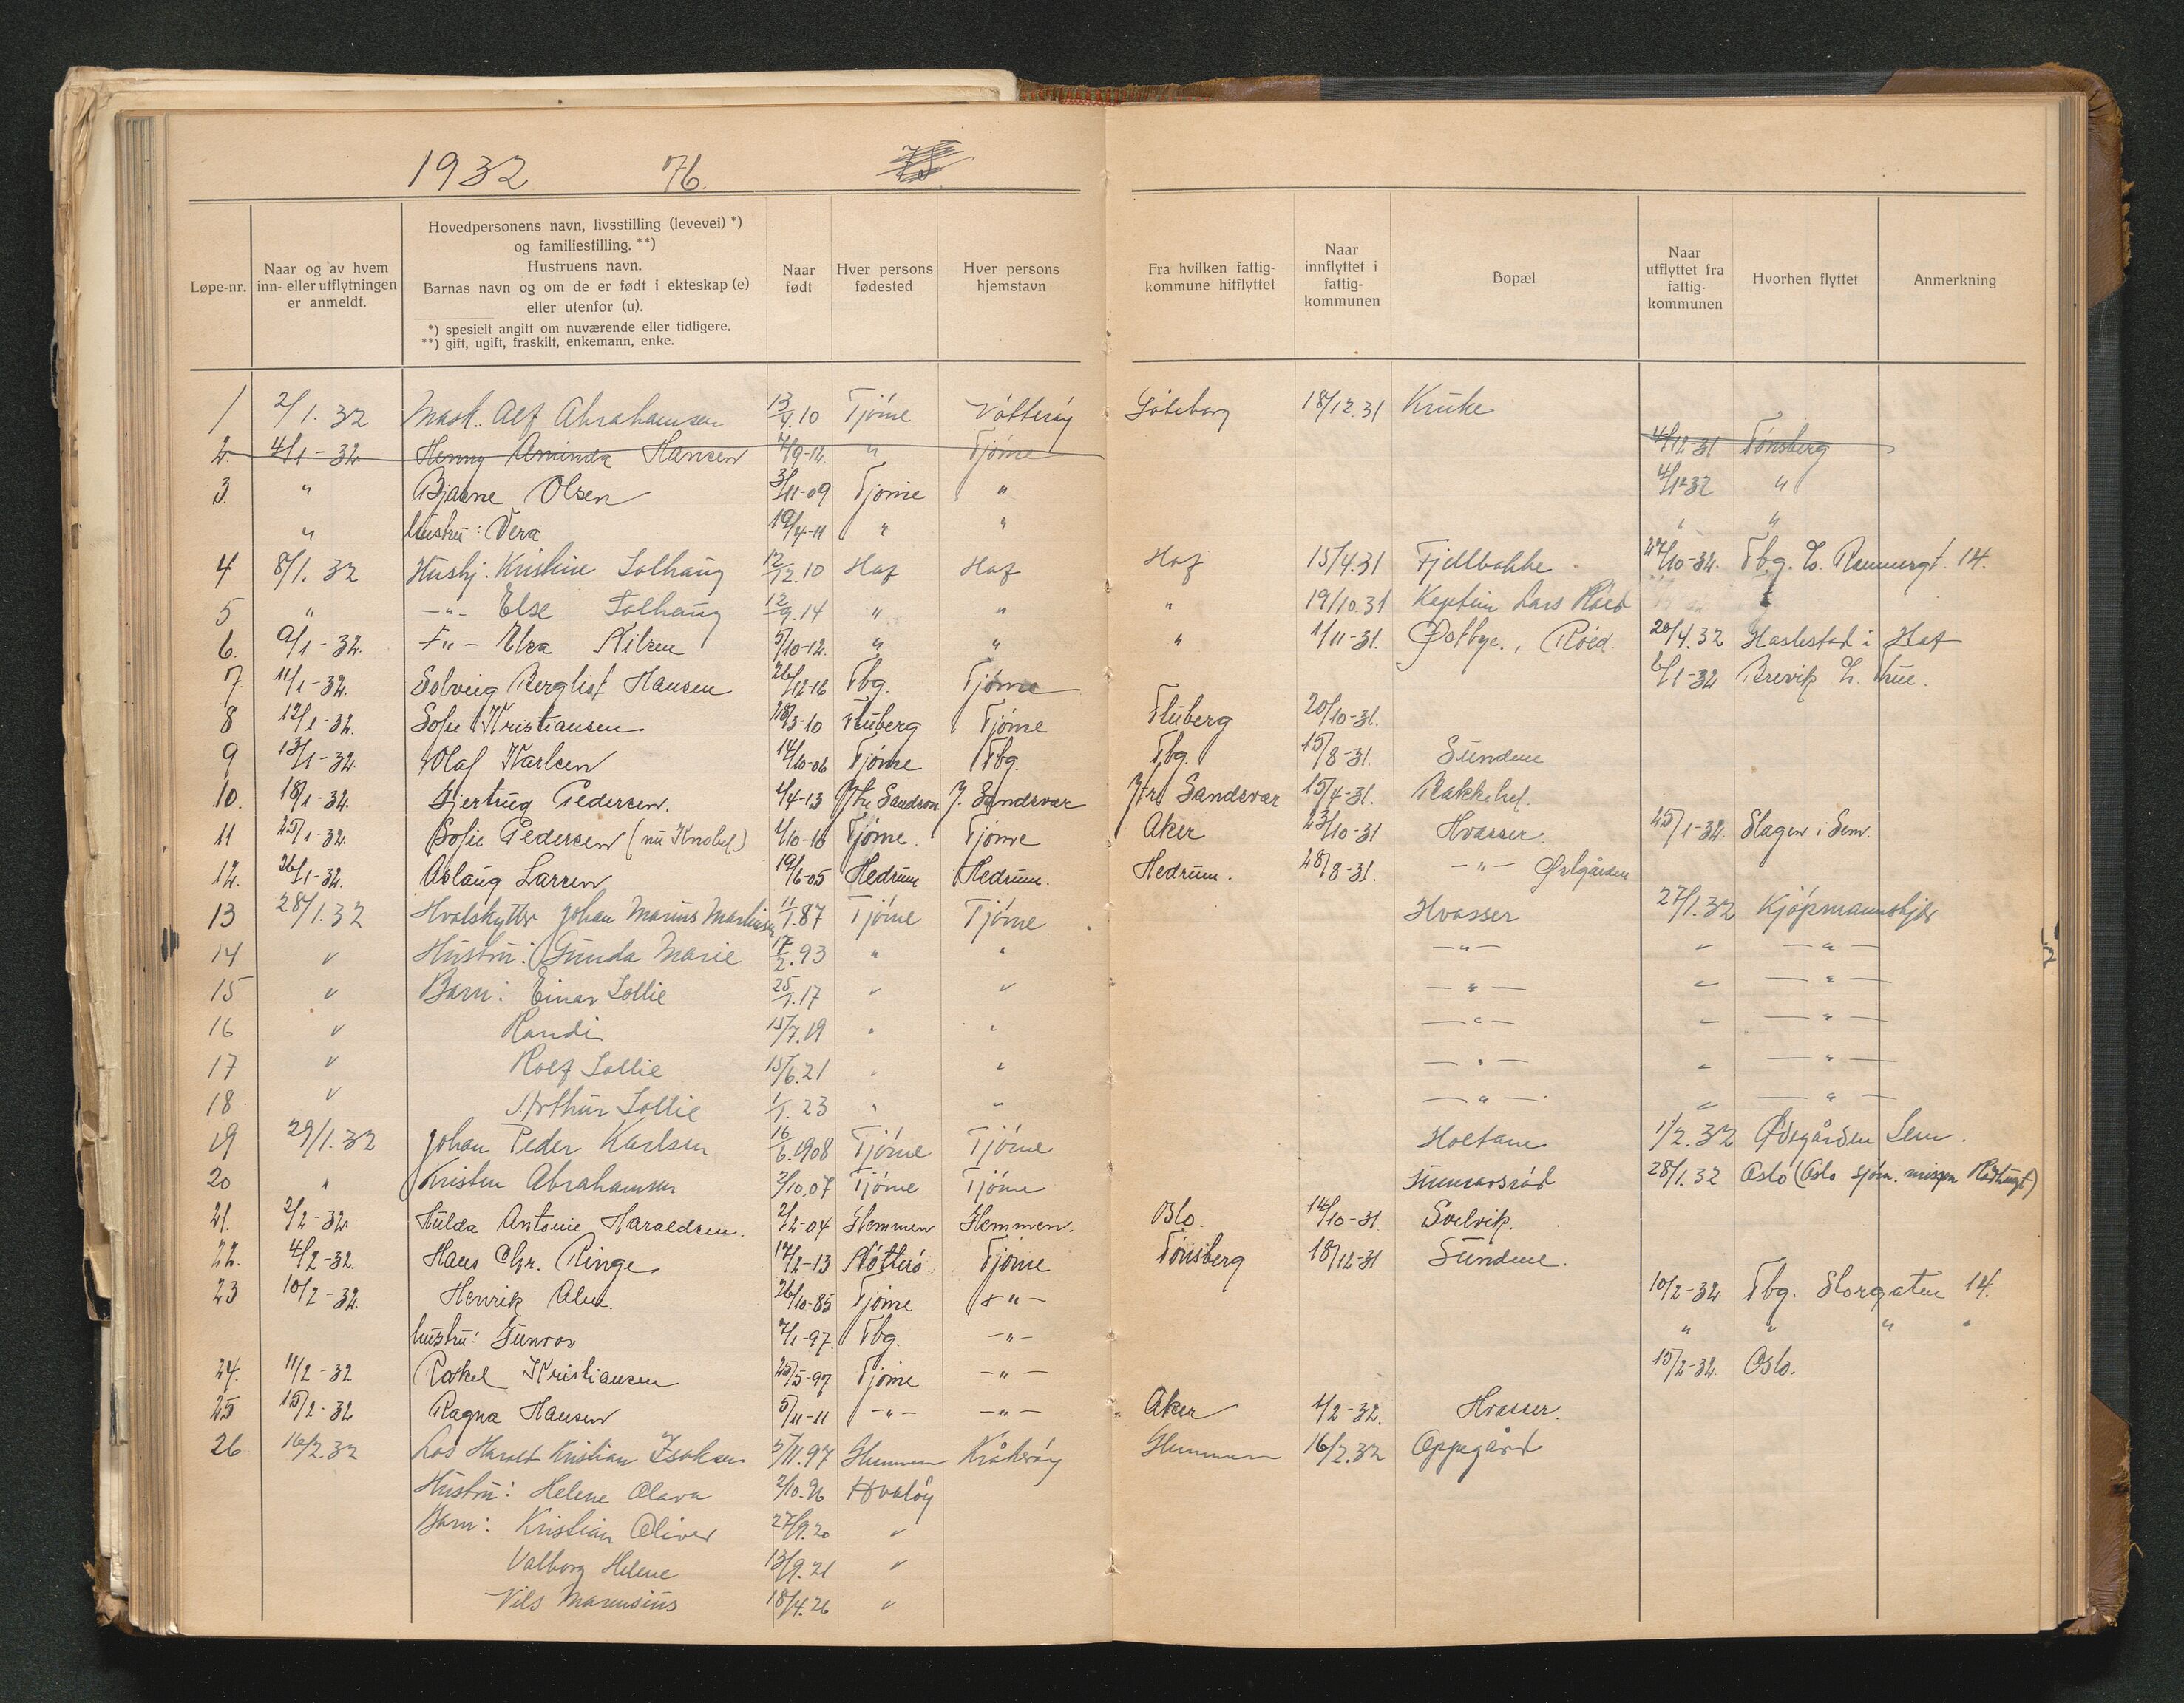 1932 76.
Løpe-nr. | Naar og av hvem inn- eller utflytningen er anmeldt. | Hovedpersonens navn, livsstilling (levevei) *) og familiestilling. **) Hustruens navn. Barnas navn og om de er født i ekteskap (e) eller utenfor (u). *) spesielt angitt om nuværende eller tidligere. **) gift, ugift, fraskilt, enkemann, enke. | Naar født | Hver persons fødested | Hver persons hjemstavn | Fra hvilken fattigkommune hitflyttet | Naar innflyttet i fattigkommunen | Bopæl | Naar utflyttet fra fattigkommunen | Hvorhen flyttet | Anmerkning
1 2/1. 32 Mask. Alf Abrahamsen 13/4.10 Tjöme Nötteröy Göteborg 18/12.31 Kruke
2. 4/1-32 Henny Aminda Hansen 7/9-12 " Tjöme 4/12-31 Tönsberg
3. " Bjarne Olsen 3/11-09 Tjöme " 4/12-32 "
" hustru: Vera 19/4-11 " " " "
4 8/1. 32 Hushj. Kristine Solhaug 12/12.10 Hof Hof Hof 15/4.31 Fjellbakke 27/10-32. Tbg. 14.
5 " -"- Else Solhaug 12/9.14 " " " 19/10.31 Kaptein Lars Röed
6. 9/1-32. -"- Elsa Nilsen 5/10-12. " " " 1/11-31. Østbye., Röed. 20/4.32 Haslestad i Hof
7. 11/1-32. Solveig Bergliot Hansen 26/12-16 Tbg. Tjöme 6/1-32 Brevik
8 12/1-32. Sofie Kristiansen 28/3-10 Fluberg Tjöme Fluberg 20/10-31.
9 13/1-32. Olaf Karlsen 14/10-06 Tjöme Tbg. Tbg. 15/8-31. Sundene
10. 18/1-32. Gjertrug Pedersen. 4/4-13 Ytre Sandsvær Y. Sandsvær Ytre Sandsvær 15/4-31. Bakkehel.
11 25/1-32. Sofie Pedersen (nu Knobel) 1/10-16 Tjöme. Tjöme Aker 23/10-31 Hvasser. 25/1-32. Slagen i Sem.
12. 26/1-32. Aslaug Larsen 19/6-05 Hedrum Hedrum. Hedrum. 28/8-31. -"- Østgården
13 28/1.32 Hvalskytter Johan Marius Martinsen 11/1.87 Tjöme Tjöme Hvasser 27/1.32 Kjöpmannskjær
14 " Hustru: Gunda Marie 17/2.93 " " -"- " -"-
15 " Barn: Einar Sollie 25/1.17 " " -"- " -"-
16 " Randi 15/7.19 " " -"- " -"-
17 " Rolf Sollie 15/6.21 " " -"- " -"-
18 " Arthur Sollie 1/1. 23 " " -"- " -"-
19 29/1.32 Johan Peder Karlsen 16/6.1908 Tjöme Tjöme Holtane 1/2.32 Ødegården Sem.
20 " Kristen Abrahamsen 2/10.07 Tjöme Tjöme Gunnarsröd 28/1.32 Oslo (Oslo sjöm. misjon Rådhusgt)
21. 2/2-32 Hulda Antonie Haraldsen. 2/2-04 Glemmen Glemmen. Oslo. 14/10-31. Solvik.
22. 4/2-32. Hans Chr. Ringe 17/2-13 Nötterö Tjöme Tönsberg 18/12-31 Sundene.
23 10/2-32. Henrik Alm. 26/10-85 Tjöme -"- 10/2-32. Tbg. Storgaten 14.
hustru: Gunvor 7/1-97 Tbg. -"- " " " "
24. 11/2-32 Rakel Kristiansen 25/5-97 Tjöme -"- 10/2-32. Oslo.
25 15/2-32 Ragna Hansen 5/11-11 -"- -"- Aker 1/2-32. Hvasser.
26 16/2.32 Los Harald Kristian Isaksen 5/11.97 Glemmen Kråkeröy Glemmen 16/2.32 Oppegård
Hustru: Helene Olava 2/10.96 Hvalöy
Barn: Kristian Oliver 27/9.20 "
Valborg Helene 13/9.21 "
Nils Marensius 18/4.26 "